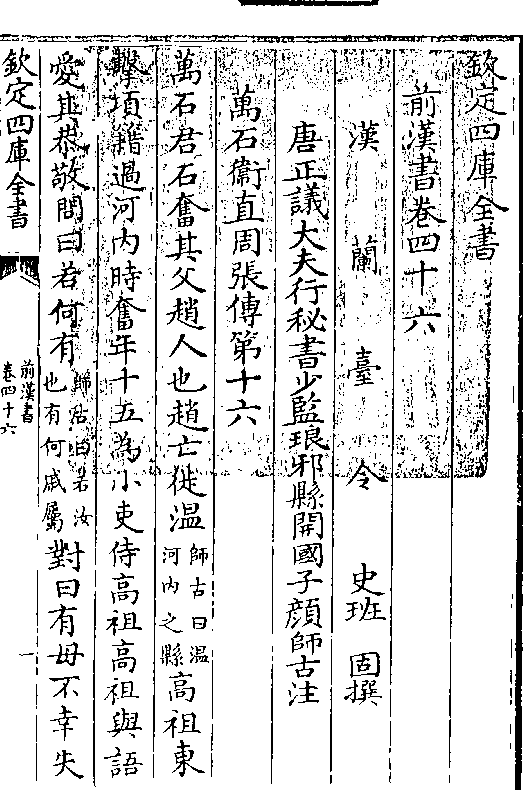 欽定四庫全書
前漢書卷四十六
漢蘭臺令史班固撰
唐正議大夫行秘書少監琅邪縣開國子顔師古注
萬石衛直周張傳第十六
萬石君石奮其父趙人也趙亡徙溫師古曰溫河内之縣高祖東
擊項籍過河内時奮年十五為小吏侍高祖高祖與語
愛其恭敬問曰若何有師古曰若汝也有何戚屬對曰有母不幸失
欽定四庫全書
前漢書
卷四十六
一